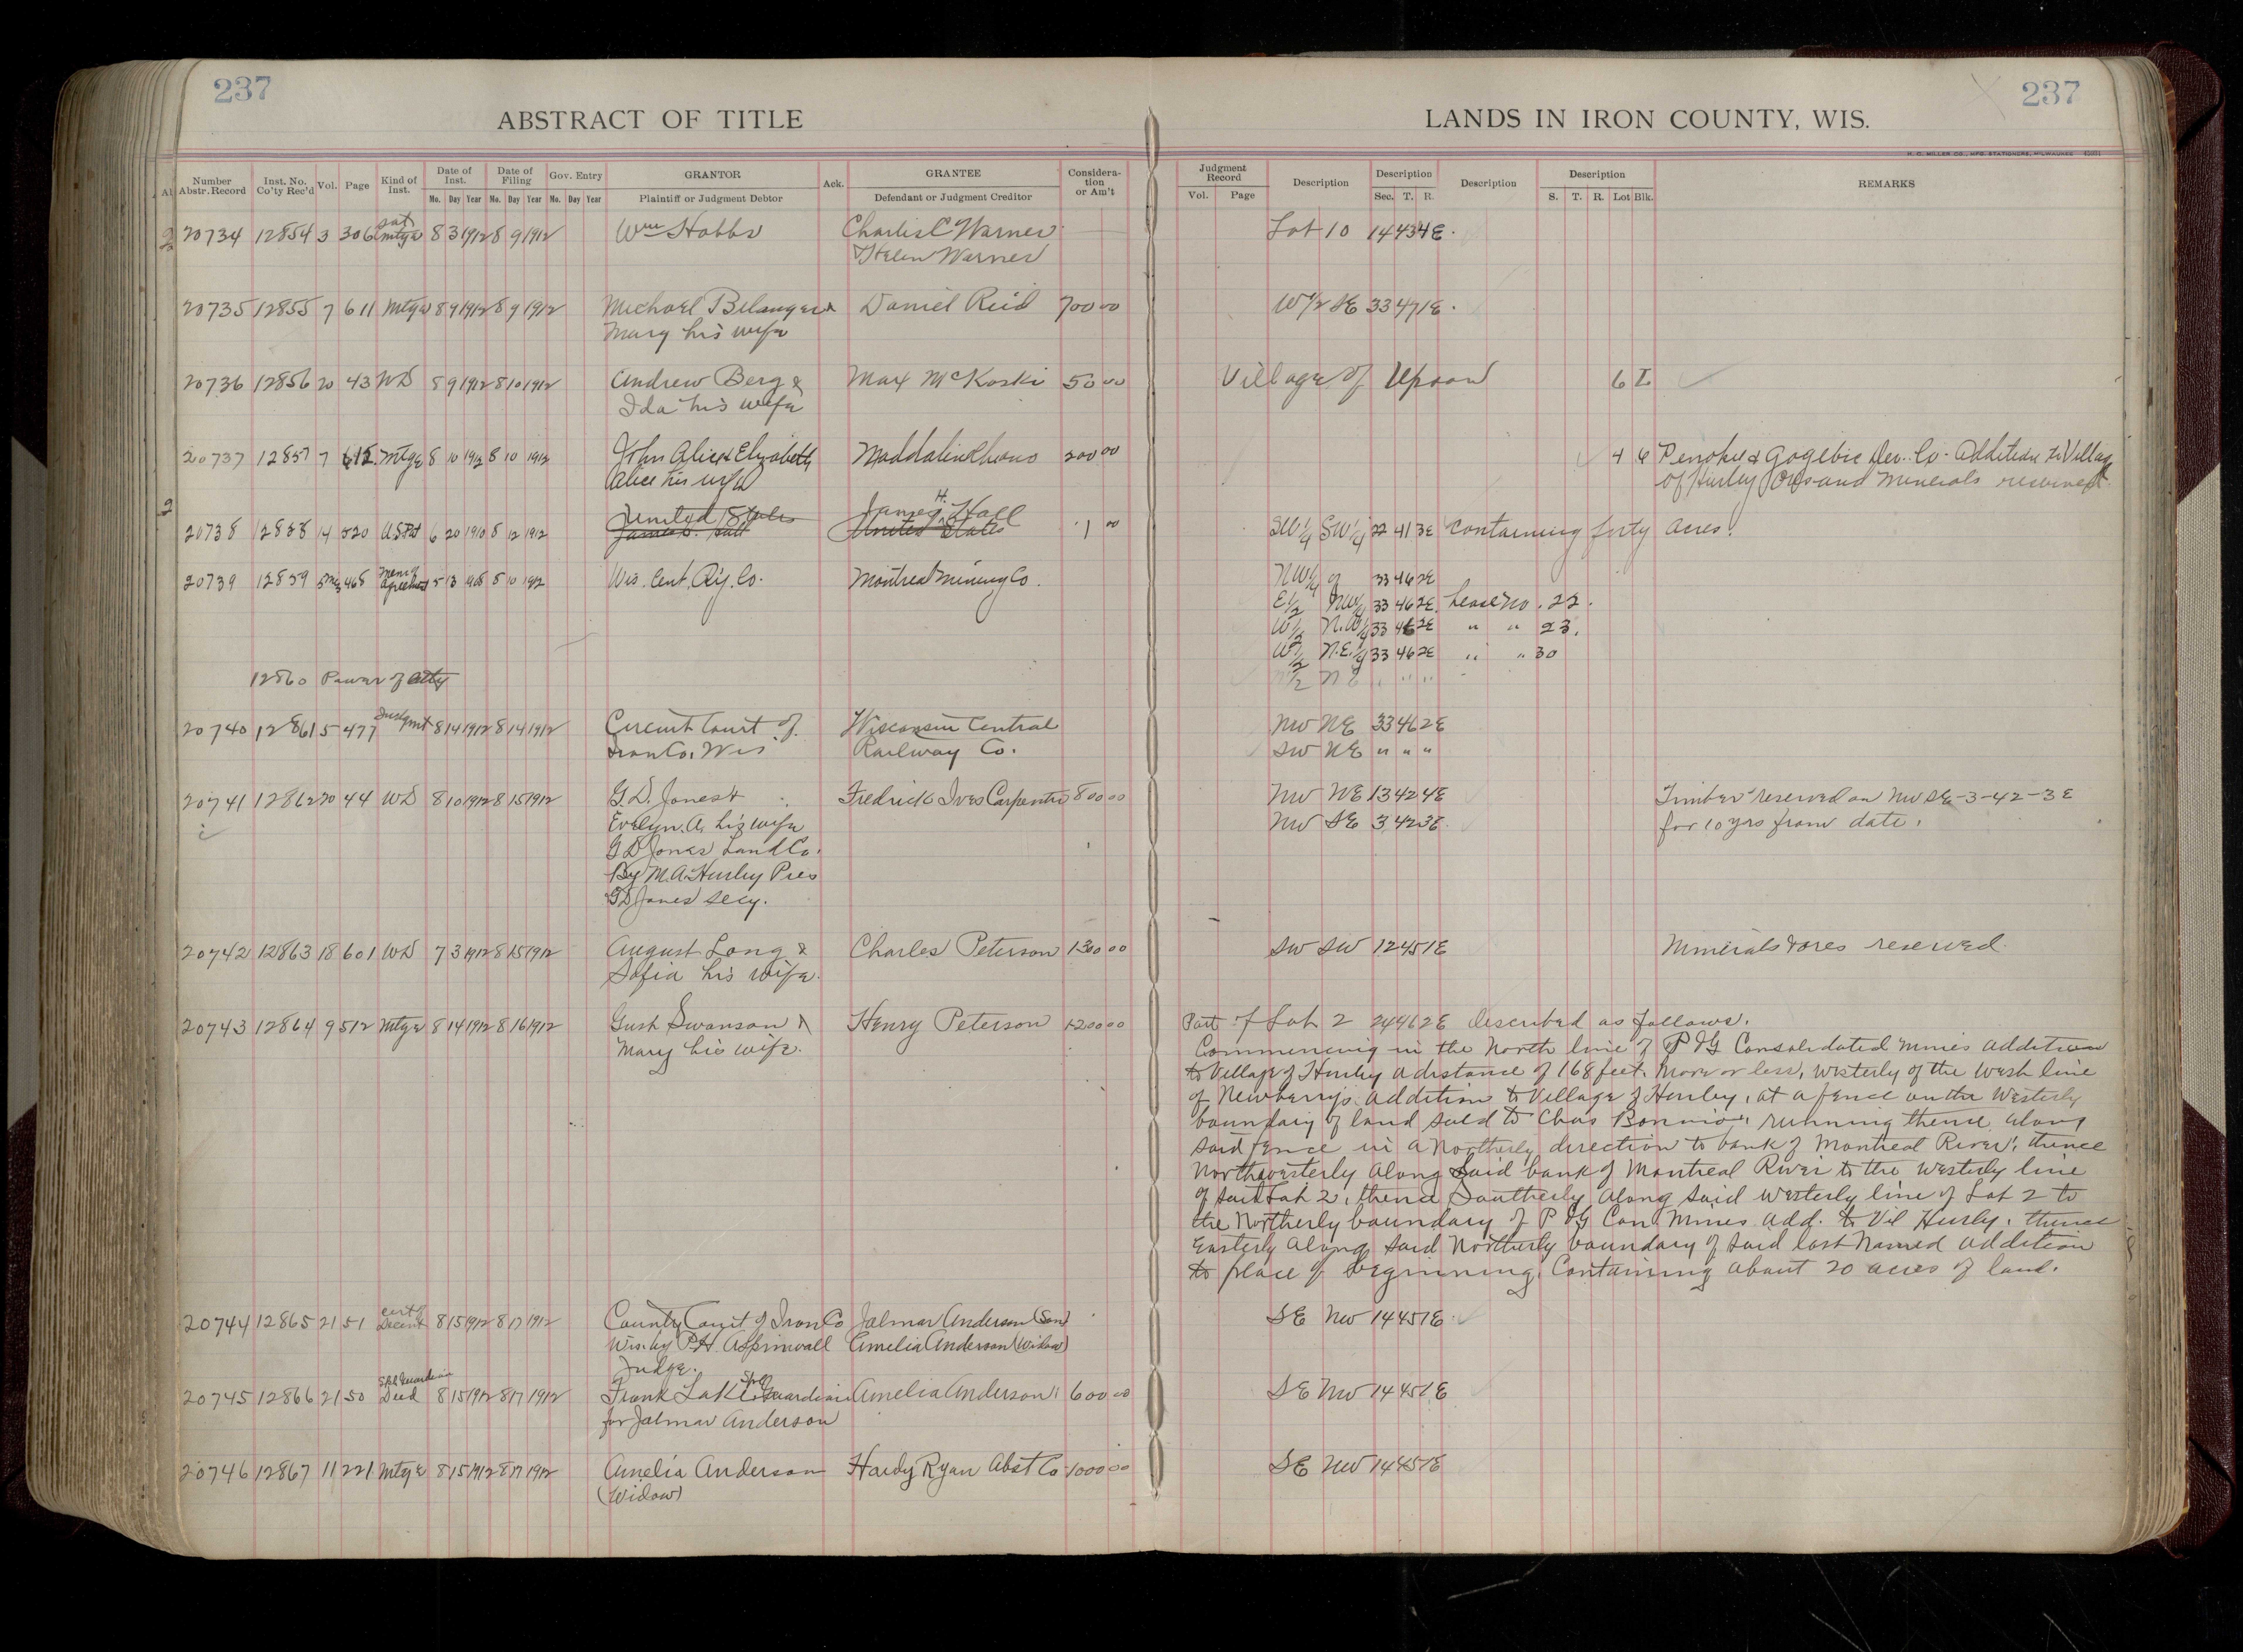 237
237
ABSTRACT OF TITLE
LANDS IN IRON COUNTY, WIS.
H. C. MILLER CO., MFG. STATIONERS, MILWAUKEE
Number Abstr. Record Inst. No. Co'ty Rec'd Vol. Page Kind of Inst. Date of Inst. Date of Filing Gov. Entry GRANTOR Ack. GRANTEE Consideration or Am't Judgment Record Description Description Description Description REMARKS
Mo. Day Year Mo. Day Year Mo. Day Year Plaintiff or Judgment Debtor Defendant or Judgment Creditor Vol. Page Sec. T. R. S. T. R. Lot Blk.
20734 12854 3 306 Sat Mtge 8 3 1912 8 9 1912 Wm Hobbs Charles C Warner Lot 10 14 43 4E
& Helen Warner
20735 12855 7 611 Mtge 8 9 1912 8 9 1912 Michael Belanger & Daniel Reid 700 00 W 1/2 SE 33 47 1E
Mary his wife
20736 12856 20 43 WD 8 9 1912 8 10 1912 Andrew Berg & Max McKoski 50 00 Village of Upson 6 I
Ida his wife
20737 12857 7 612 Mtge 8 10 1912 8 10 1912 John Alice & Elizabeth 200 00 4 6 Penokee & Gogebic Dev. Co. Addition to Village
Alice his wife of Hurley Ores and Minerals reserved
20738 12858 14 520 U.S. Pat 6 20 1910 8 12 1912 United States James H. Hall 1 00 SW 1/4 SW 1/4 22 41 3E containing forty acres.
James H. Hall United States
20739 12859 5 465 Agreement 5 13 1908 8 10 1912 Wis. Cent. R'y. Co. Montreal Mining Co. NW 1/4 of 33 46 2E
E 1/2 NW 1/4 33 46 2E Lease No. 22.
W 1/2 N.W 1/4 33 46 2E " " 23.
W 1/2 N.E. 1/4 33 46 2E " " 30
12860 Power of Atty
20740 12861 5 477 Judgmt 8 14 1912 8 14 1912 Circuit Court of Wisconsin Central NW NE 33 46 2E
Iron Co, Wis Railway Co. SW NE " " "
20741 12862 20 44 WD 8 10 1912 8 15 1912 G.D. Jones & Fredrick Ives Carpenter 800 00 NW NE 13 42 4E Timber reserved on NW SE-3-42-3E
Evelyn. A. his wife NW SE 3 42 3E for 10 yrs from date.
G D Jones Land Co.
By M.A. Hurley Pres
G D Jones Secy.
20742 12863 18 601 WD 7 3 1912 8 15 1912 August Long & Charles Peterson 1300 00 SW SW 12 45 1E Minerals & ores reserved.
Sofia his wife.
20743 12864 9 512 Mtge 8 14 1912 8 16 1912 Gust Swanson & Henry Peterson 1200 00 Part of Lot 2 24 46 2E described as follows.
Mary his wife. Commencing in the North line of P & G Consolidated Mines addition
to Village of Hurley a distance of 168 feet. More or less, Westerly of the West line
of Newberry's addition to Village of Hurley, at a fence on the Westerly
boundary of land sold to Chas running thence along
said fence in a Northerly direction to bank of Montreal River, thence
Northwesterly along said bank of Montreal River to the Westerly line
of said Lot 2, thence Southerly along said westerly line of Lot 2 to
the Northerly boundary of P & G Con Mines Add. to Vil Hurly, thence
Easterly along said Northerly boundary of said last named addition
to place of beginning. Containing about 20 acres of land.
20744 12865 21 51 Cert of Decent 8 15 1912 8 17 1912 County Court of Iron Co Jalmar Anderson (Son) SE NW 14 45 1E
Wis. by P.H. Aspinwall Amelia Anderson (Widow)
Judge.
20745 12866 21 50 Spcl Guardian Deed 8 15 1912 8 17 1912 Frank Guardian Amelia Anderson 600 00 SE NW 14 45 1E
for Jalmar Anderson
20746 12867 11 221 Mtge 8 15 1912 8 17 1912 Amelia Anderson Hardy Ryan Abst Co 1000 00 SE NW 14 45 1E
(Widow)